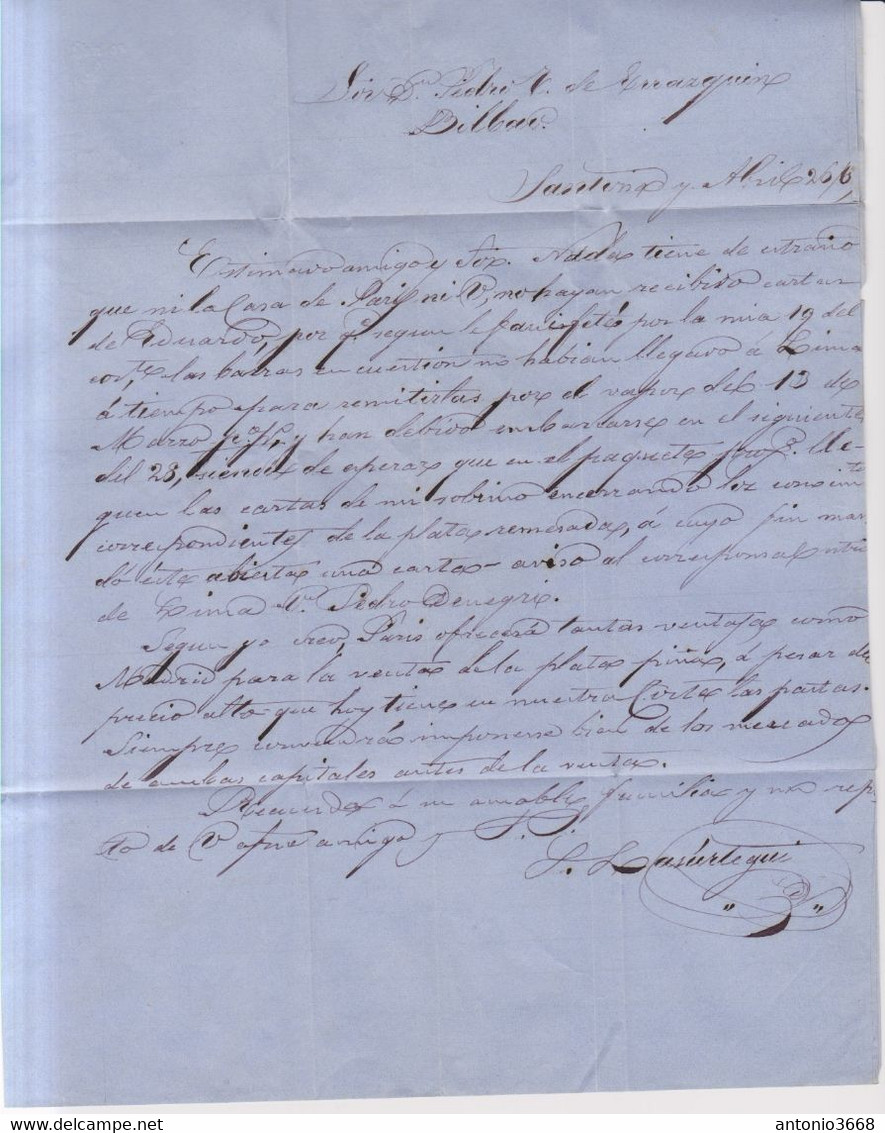 Sor Dn. Pedro T. de Errazquin
Bilbao.
Santoña y Abril 26/
Estimado amigo y Sor. Nada tiene de estraño
que ni la Casa de Paris ni V, no hayan recibido cartas
de Eduardo, por q. segun le por la mia 19 del
corte. las barras en cuestion no habian llegado á Lima
á tiempo para remitirlas por el vapor del 13 de
Marzo y han debido embarcarse en el siguiente
del 28, siendo de esperar que en el paquete prox. lle-
guen las cartas de mi sobrino encerrando los conocimtos
correspondientes de la plata remesada, á cuyo fin man-
dó éste abierta una carta-aviso al corresponsal
de Lima Dn. Pedro Denegri.
Segun yo creo, Paris ofrecerá tantas ventajas como
Madrid para la venta de la plata piña, á pesar del
precio alto que hoy tiene en nuestra Corte las pastas.
Siempre convendrá imponerse bien de los mercados
de ambas capitales antes de la venta.
Recuerdos á su amable familia y
de V afmo amigo y S. S.
S. Lasúrtegui
antonio3668